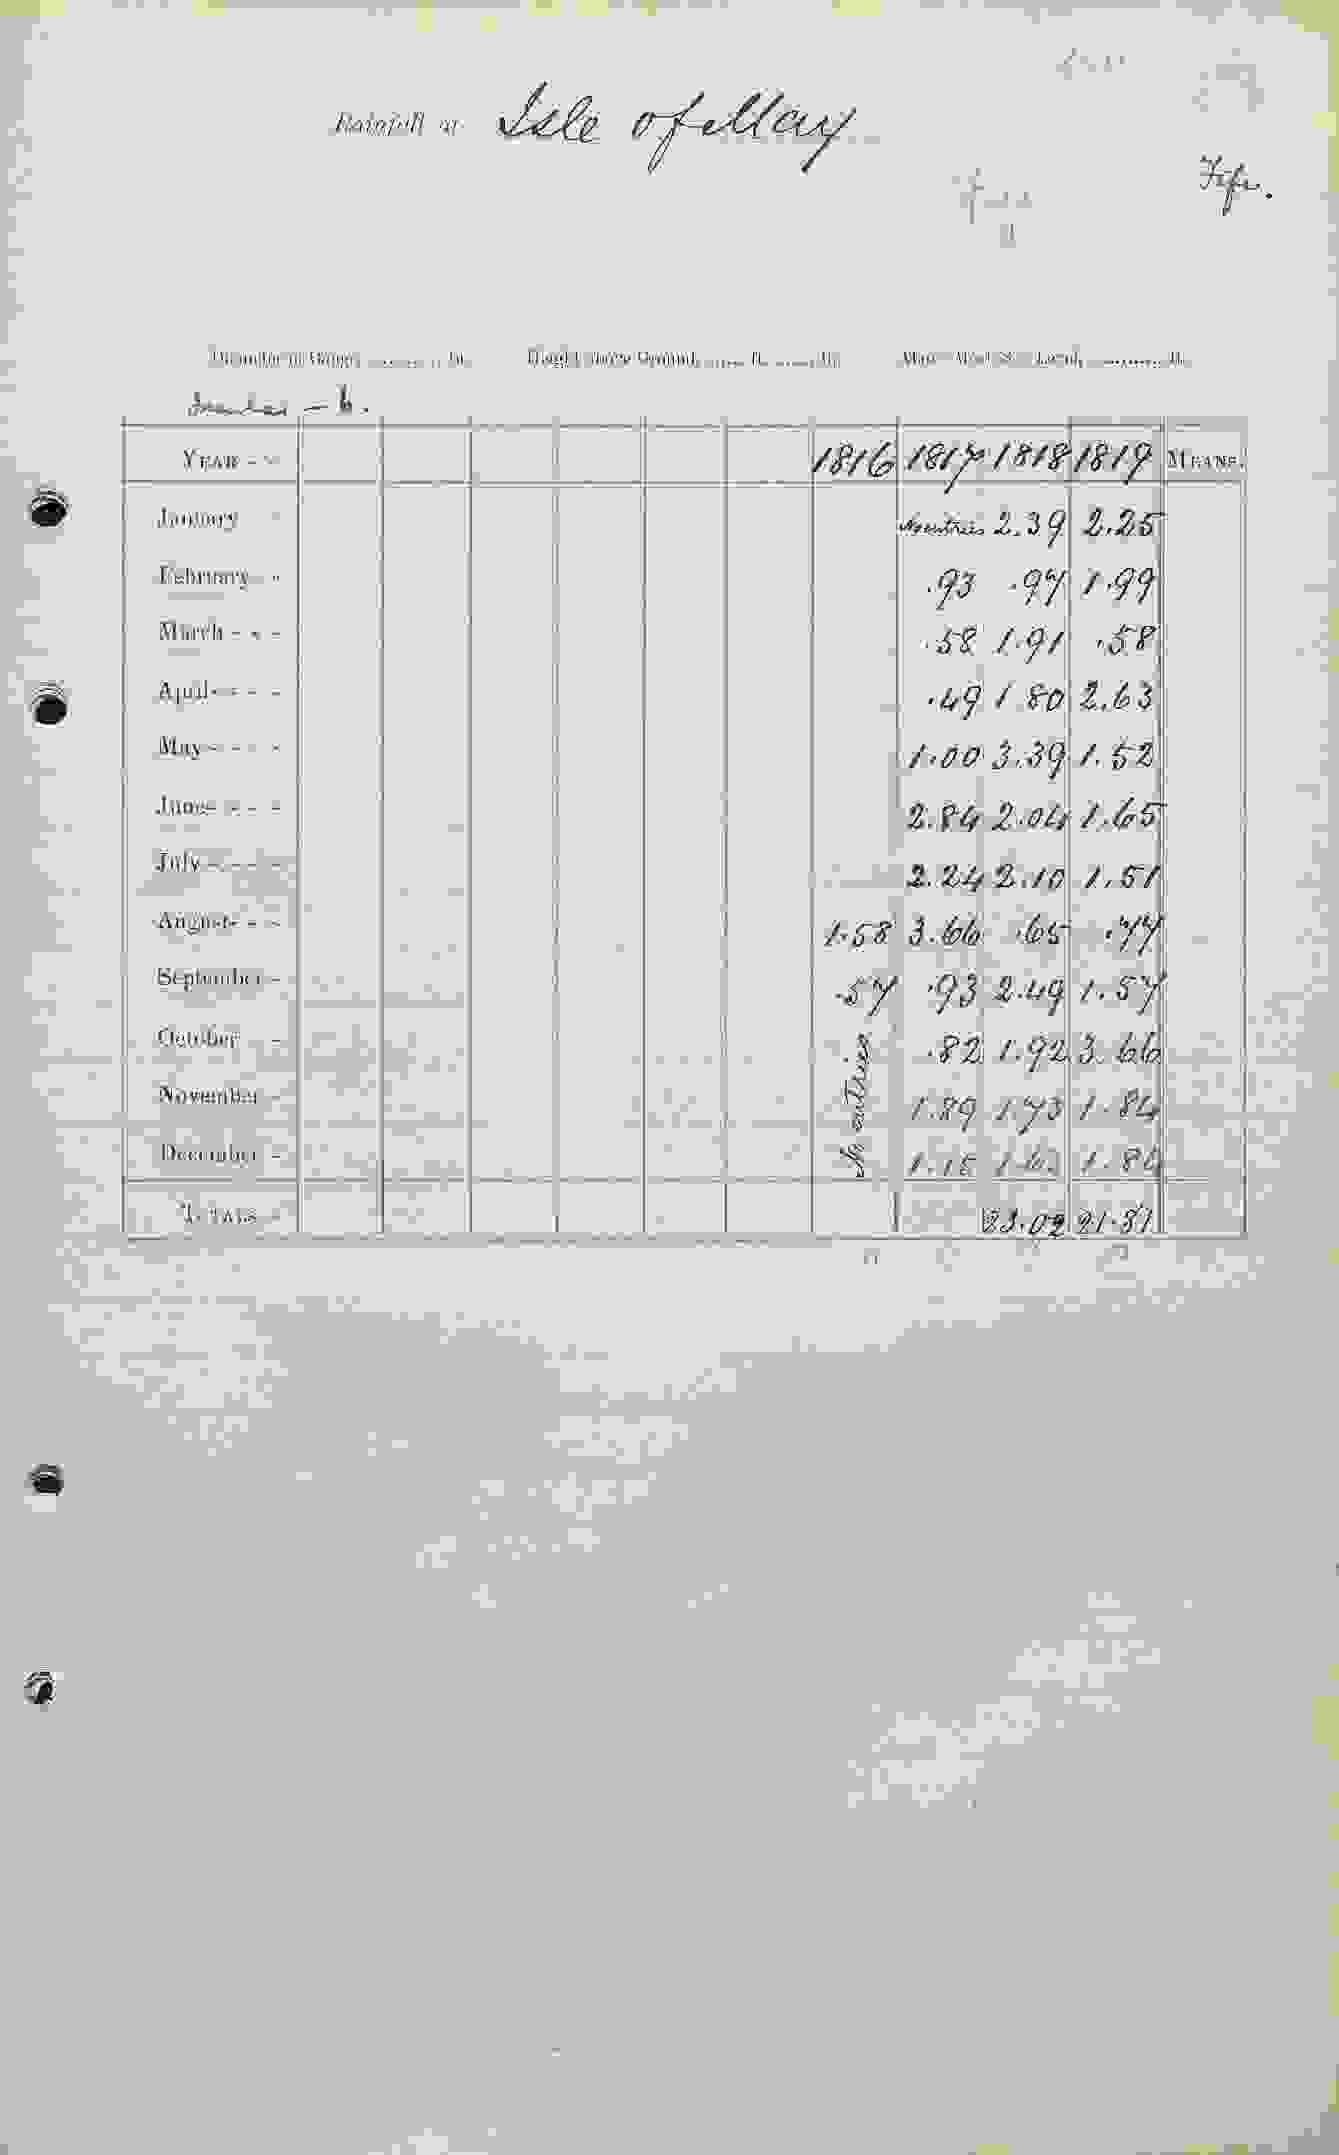 Rainfall at Isle of May
Fife.
Diameter of Gauge, In. Height above Ground, ft. in. Above Mean Sea Level, ft.
YEAR - - 1816 1817 1818 1819 MEANS.
January - No entries 2.39 2.25
February - - .93 .97 1.99
March - - - .58 1.91 .58
April - - - - .49 1.80 2.63
May - - - - 1.00 3.39 1.52
June - - - - 2.84 2.04 1.65
July - - - - 2.24 2.10 1.51
August - - - 1.58 3.66 .65 .77
September - .57 .93 2.49 1.57
October - - No entries .82 1.92 3.66
November - 1.89 1.73 1.84
December - 1.15 1.63 1.84
TOTALS - 23.02 21.81